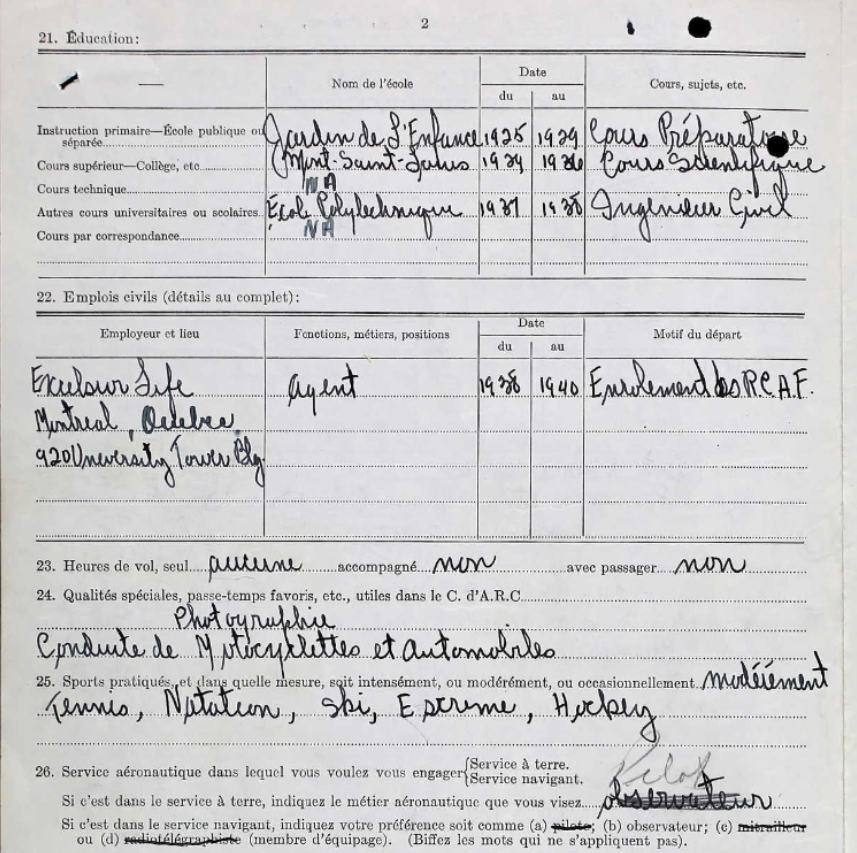 2
21. Éducation:
— Nom de l'école Date Cours, sujets, etc.
du au
Instruction primaire—École publique ou séparée Jardin de L'Enfance 1925 1929 Cours Préparatoire
Cours supérieur—Collège, etc. (Mont-Saint-Louis 1929 1936 Cours Scientifique
Cours technique NA
Autres cours universitaires ou scolaires École Polytechnique 1937 1938 Ingenieur Civil
Cours par correspondance NA
22. Emplois civils (détails au complet):
Employeur et lieu Fonctions, métiers, positions Date Motif du départ
du au
Excelsior Life agent 1938 1940 Enrolement R.C.A.F.
Montreal, Quebec
920 University Tower Bldg
23. Heures de vol, seul aucune accompagné non avec passager non
24. Qualités spéciales, passe-temps favoris, etc., utiles dans le C. d'A.R.C.
Photographie
Conduite de Motocyclettes et automobiles
25. Sports pratiqués, et dans quelle mesure, soit intensément, ou modérément, ou occasionnellement modérément
Tennis, Natation, Ski, Escrime, Hockey
26. Service aéronautique dans lequel vous voulez vous engager {Service à terre.
{Service navigant.
Pilot
Si c'est dans le service à terre, indiquez le métier aéronautique que vous visez observateur
Si c'est dans le service navigant, indiquez votre préférence soit comme (a) pilote; (b) observateur; (c) mitrailleur
ou (d) radiotélégraphiste (membre d'équipage). (Biffez les mots qui ne s'appliquent pas).